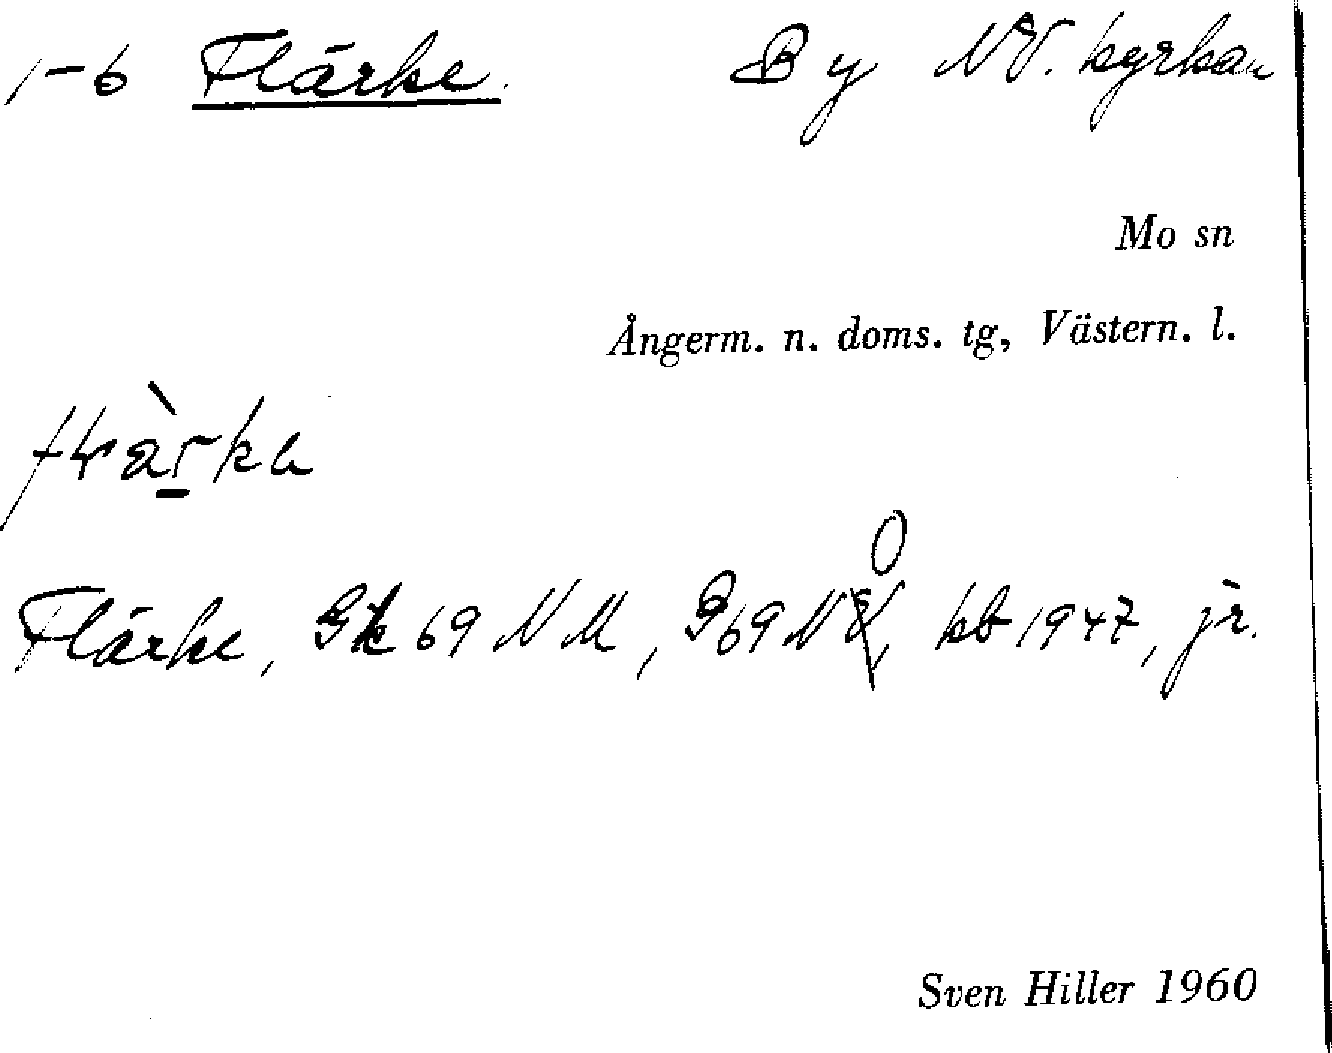 1-6 Flärke. By NV. kyrkan
Mo sn
Ångerm. n. doms. tg, Västern. l.
Flärke, Gk 69 NM, G 69 NO, kb 1947, jr.
Sven Hiller 1960